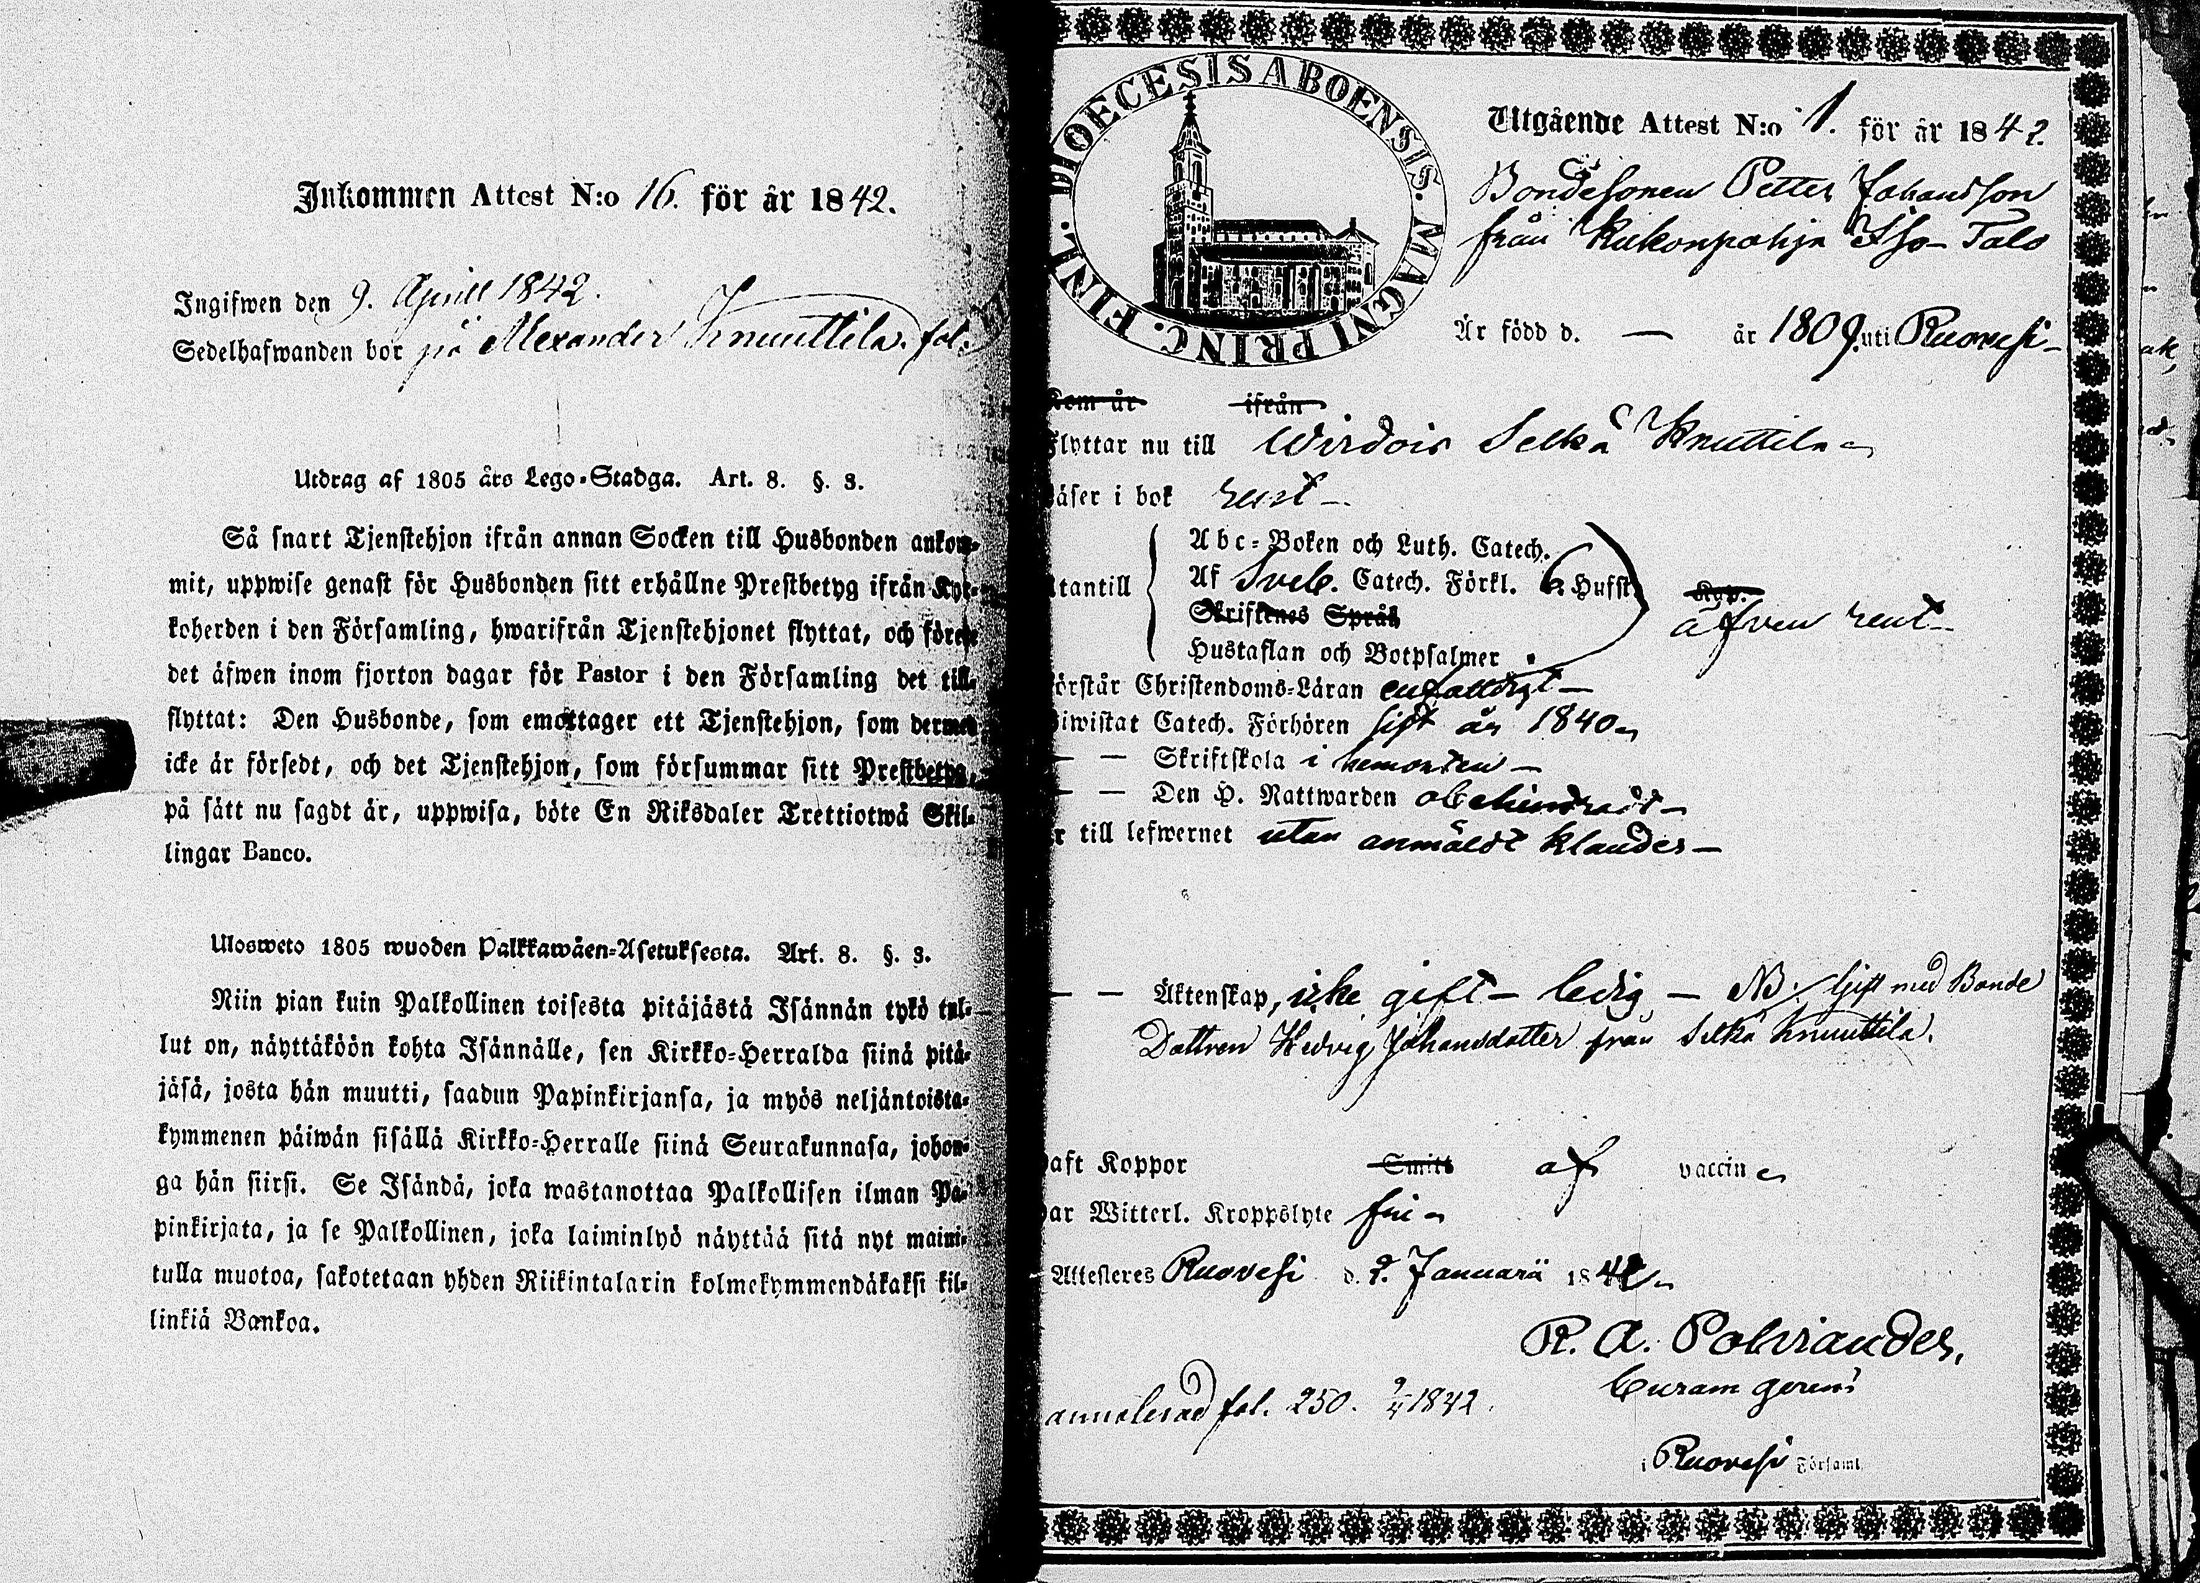 Inkommen Attest N:o 16. för år 1842.
Ingifwen den 9. Aprill 1842.
Sedelhafwanden bor på Alexander Knuuttila. fol.
Utdrag af 1805 års Lego-Stadga. Art. 8. §. 3.
Så snart Tjenstehjon ifrån annan Socken till Husbonden ankom-
mit, uppwise genast för Husbonden sitt erhållne Prestbetyg ifrån Kyr-
koherden i den Församling, hwarifrån Tjenstehjonet flyttat, och förete
det äfwen inom fjorton dagar för Pastor i den Församling det till-
flyttat: Den Husbonde, som emottager ett Tjenstehjon, som dermed
icke är försedt, och det Tjenstehjon, som försummar sitt Prestbetyg,
på sätt nu sagdt är, uppwisa, böte En Riksdaler Trettiotwå Skil-
lingar Banco.
Ulosweto 1805 wuoden Palkkawäen-Asetuksesta. Art. 8. §. 3.
Niin pian kuin Palkollinen toisesta pitäjästä Isännän tykö tul-
lut on, näyttäköön kohta Isännälle, sen Kirkko-Herralda siinä pitä-
jäsä, josta hän muutti, saadun Papinkirjansa, ja myös neljäntoista-
kymmenen päiwän sisällä Kirkko-Herralle siinä Seurakunnasa, johon-
ga hän siirsi. Se Isändä, joka wastanottaa Palkollisen ilman Pa-
pinkirjata, ja se Palkollinen, joka laiminlyö näyttää sitä nyt maini-
tulla muotoa, sakotetaan yhden Riikintalarin kolmekymmendäkaksi kil-
linkiä Bankoa.
DIOECESIS ABOENSIS. MAGNI PRINC. FINL.
Utgående Attest N:o 1. för år 1842.
Bondesonen Petter Johansson
från Kukonpohja Iso-Talo
Är född d. — år 1809. uti Ruovesi —
Kom år ifrån
Flyttar nu till Wirdois Selkä Knuttila
Läser i bok rent —
Abc-Boken och Luth. Catech.
Utantill Af Sveb. Catech. Förkl. o. Hufst.
Skriftenes Språk
Hustaflan och Botpsalmer
Kap.
äfven rent —
Förstår Christendoms-Läran enfaldigt —
Biwistat Catech. Förhören sist år 1840
— — Skriftskola i hemorten —
— — Den H. Nattwarden obehindradt —
Är till lefwernet utan anmäldt klander —
— — Äktenskap, icke gift — ledig — NB. Gift med Bonde
Dottren Hedvig Johansdotter från Selkä Knuuttila.
Haft Koppor Smitt af vaccin
Har Witterl. Kroppslyte fri
Attesteres Ruovesi d. 2. Januarii 1842
R. A. Polviander,
Curam gerens
annoterad fol. 250. 9/4 1842.
i Ruovesi Församl.